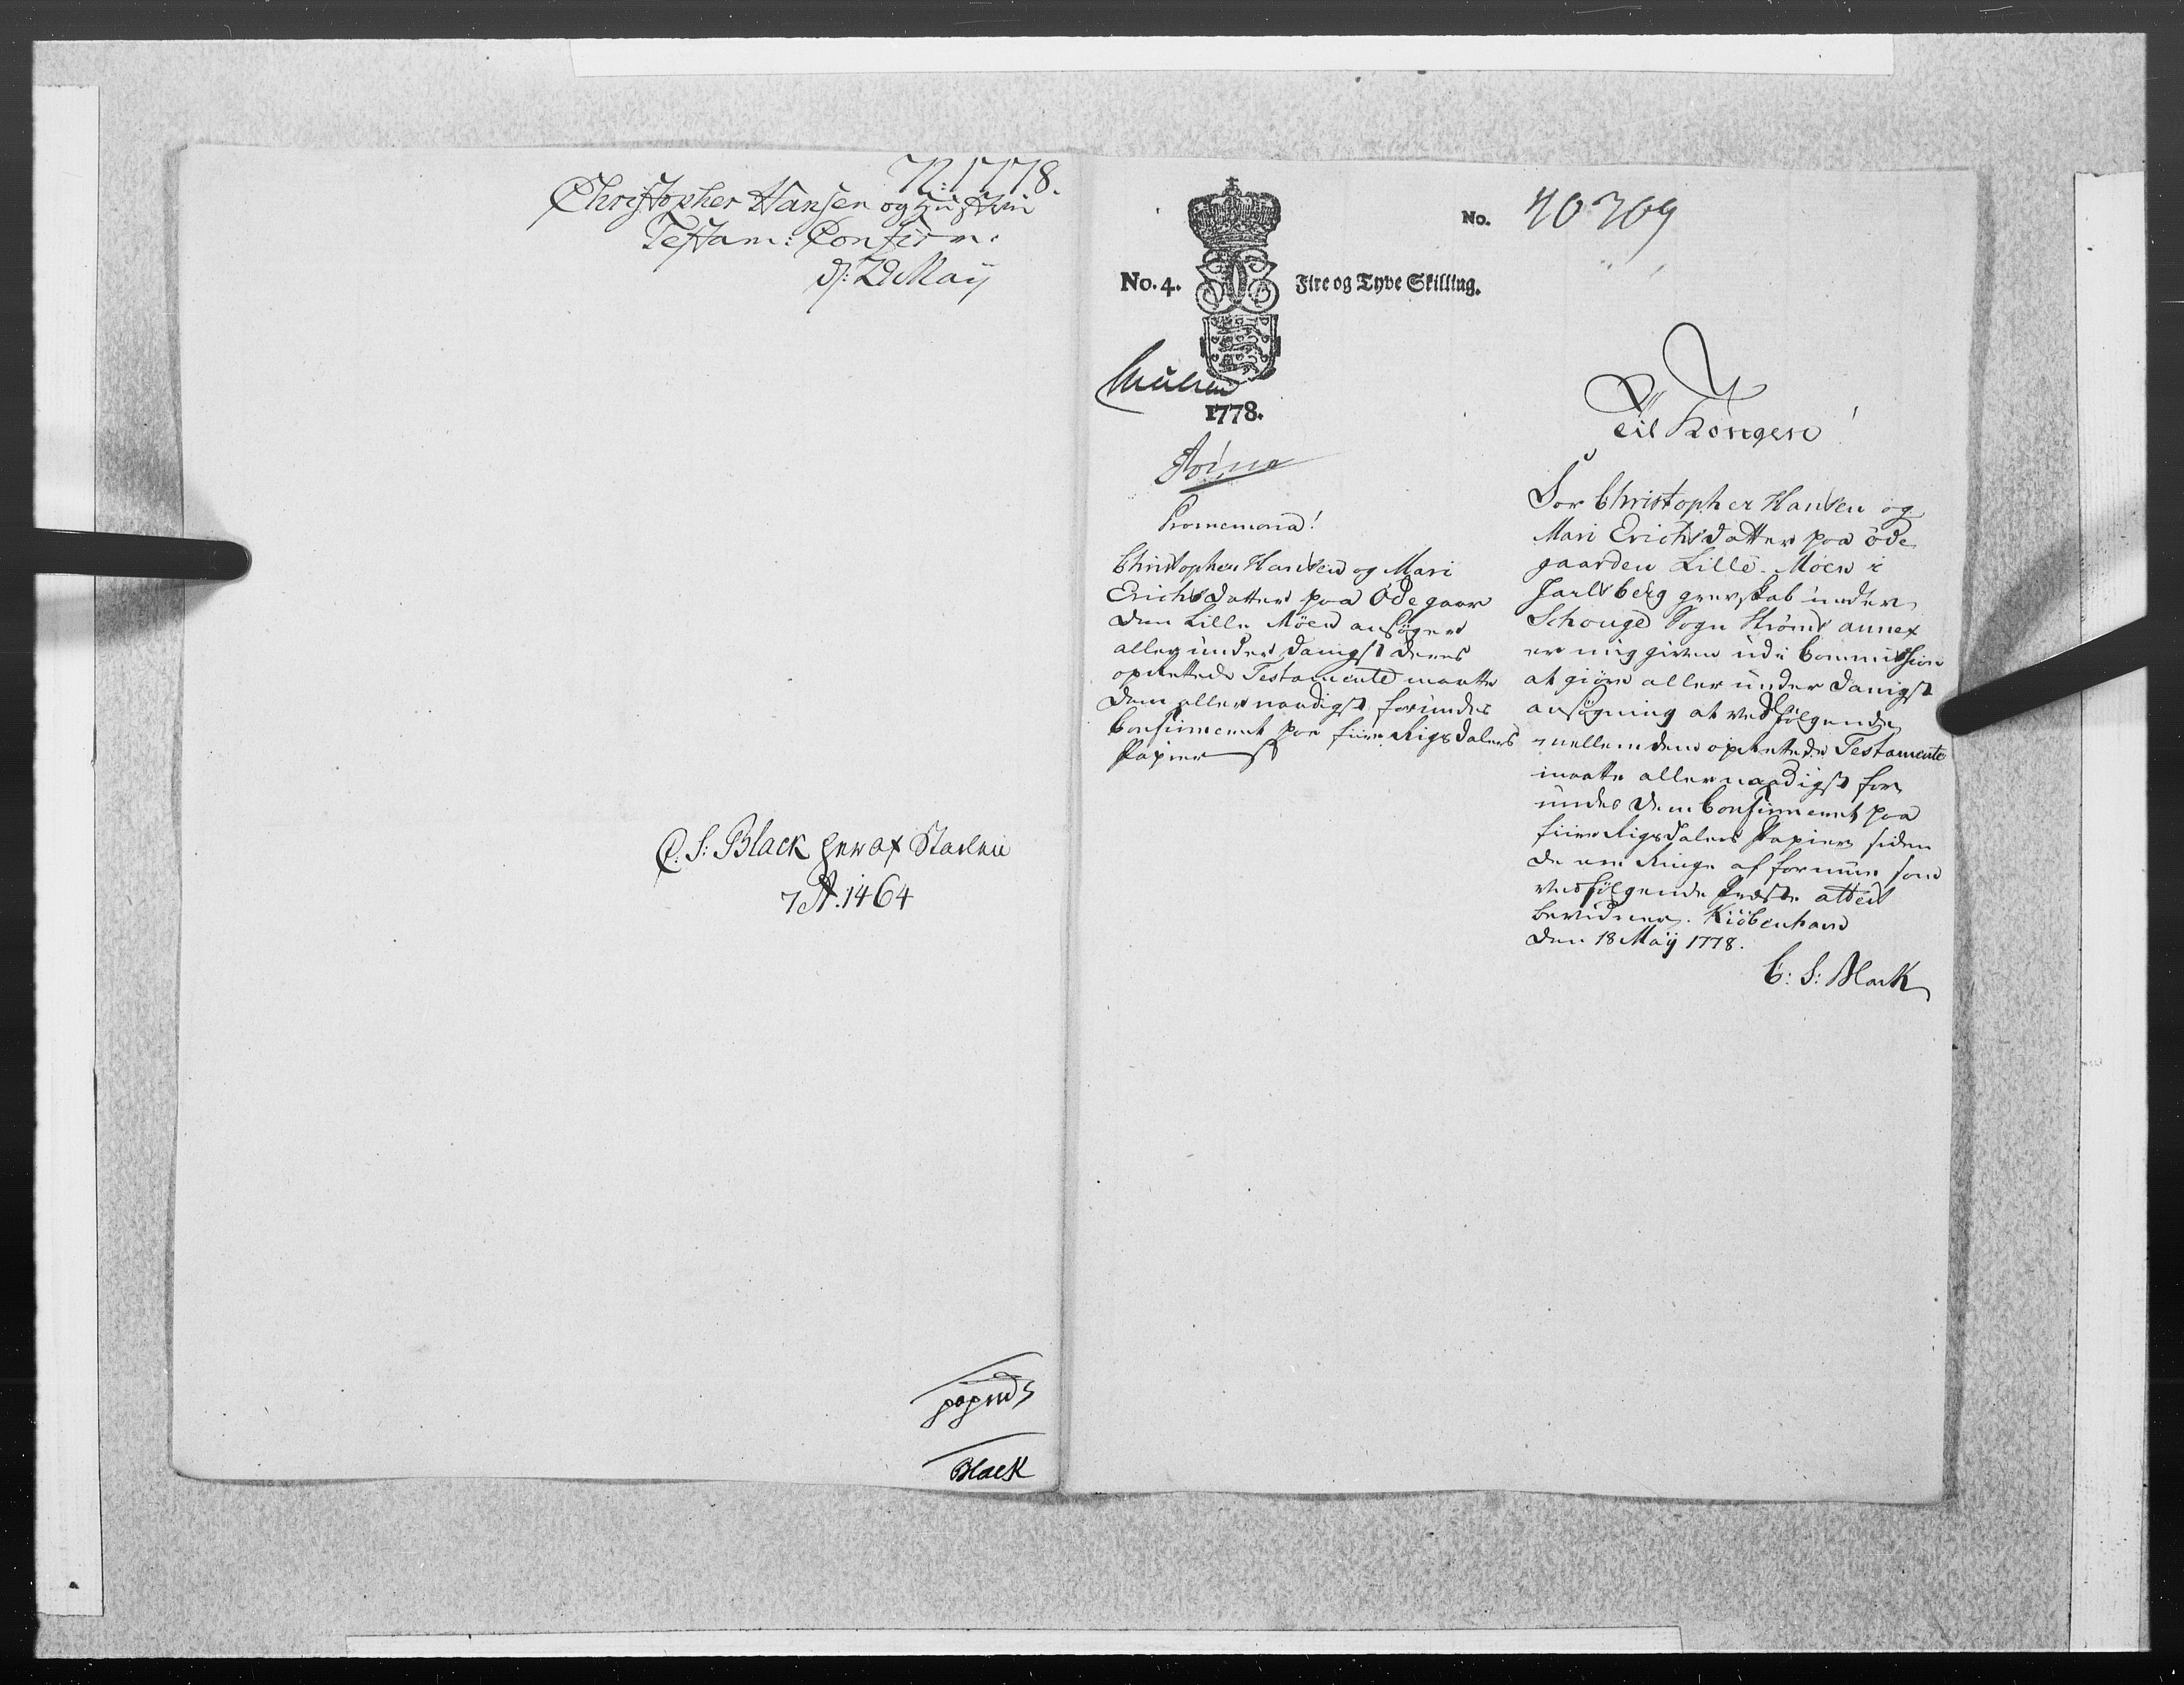 N: 1778.
Christopher Hansen og Hustrue
Testam: Confirm.
d: 29 May
C. S: Black
7 A. 1464
papiir
Black
No. 4.
Fire og Tyve Skilling.
No. 40709
1778.
Promemoria!
Christopher Hansen og Mari
Erichsdatter paa Ödegaar
den Lille Möen ansöger
allerunderdanigst deres
oprettede Testamente maatte
dem allernaadigst forundes
Confirmeret paa fiire Rigsdalers
Papiir
Til Kongen!
For Christopher Hansen og
Mari Erichsdatter paa öde
gaarden Lille Möen i
Jarlsberg grevskab under
Schouge Sogn Ströms annex
er mig given udi Commission
at giöre allerunderdanigst
ansögning at vedfölgende
mellem dem oprettede Testamente
maatte allernaadigst for
undes dem Confirmeret paa
fiire Rigsdalers Papiir siden
de ere Ringe af formue som
vedfölgende Præste attest
bevidner. Kiöbenhavn
den 18 Maÿ 1778.
C: S: Black